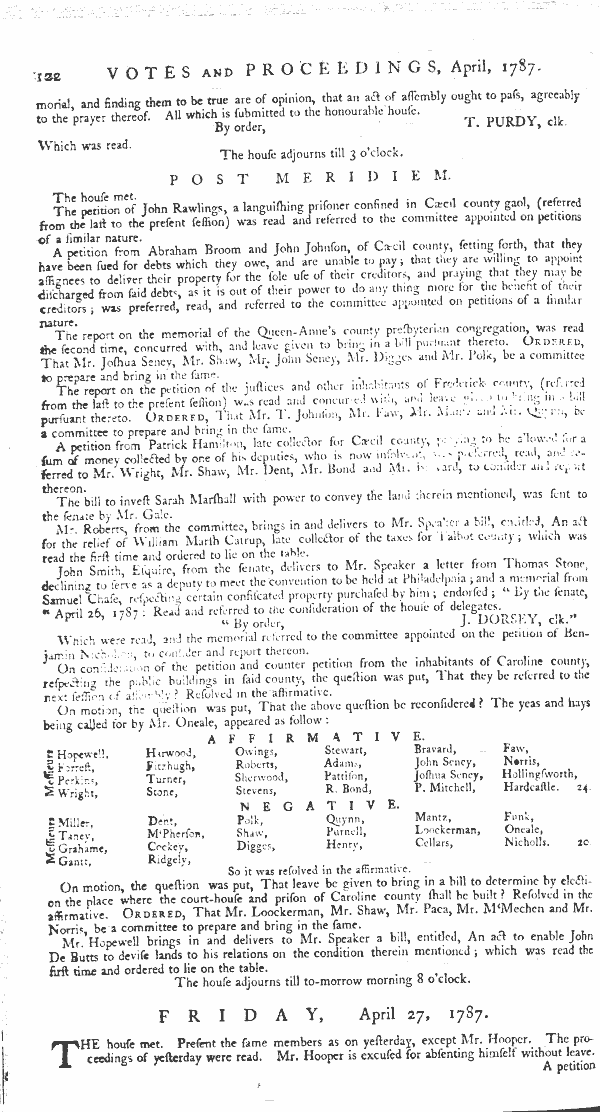 122 VOTES AND PROCEEDINGS, April, 1787.
morial, and finding them to be true are of opinion, that an act of aſſembly ought to paſs, agreeably
to the prayer thereof. All which is ſubmitted to the honourable houſe.
By order, T. PURDY, clk.
Which was read.
The houſe adjourns till 3 o'clock.
POST MERIDIEM.
The houſe met.
The petition of John Rawlings, a languiſhing priſoner confined in Cæcil county gaol, (referred
from the laſt to the preſent ſeſſion) was read and referred to the committee appointed on petitions
of a ſimilar nature.
A petition from Abraham Broom and John Johnſon, of Cæcil county, ſetting forth, that they
have been ſued for debts which they owe, and are unable to pay; that they are willing to appoint
aſſignees to deliver their property for the ſole uſe of their creditors, and praying that they may be
diſcharged from ſaid debts, as it is out of their power to do any thing more for the benefit of their
creditors; was preferred, read, and referred to the committee appointed on petitions of a ſimilar
nature.
The report on the memorial of the Queen-Anne's county preſbyterian congregation, was read
the ſecond time, concurred with, and leave given to bring in a bill purſuant thereto. ORDERED,
That Mr. Joſhua Seney, Mr. Shaw, Mr. John Seney, Mr. Digges and Mr. Polk, be a committee
to prepare and bring in the ſame.
The report on the petition of the juſtices and other inhabitants of Frederick county, (referred
from the laſt to the preſent ſeſſion) was read and concurred with, and leave given to bring in a bill
purſuant thereto. ORDERED, That Mr. T. Johnſon, Mr. Faw, Mr. Mantz and Mr. Quynn, be
a committee to prepare and bring in the ſame.
A petition from Patrick Hamilton, late collector for Cæcil county, praying to be allowed for a
ſum of money collected by one of his deputies, who is now inſolvent, was preferred, read, and re-
ferred to Mr. Wright, Mr. Shaw, Mr. Dent, Mr. Bond and Mr. to conſider and report
thereon.
The bill to inveſt Sarah Marſhall with power to convey the land therein mentioned, was ſent to
the ſenate by Mr. Gale.
Mr. Roberts, from the committee, brings in and delivers to Mr. Speaker a bill, entitled, An act
for the relief of William Marth Catrup, late collector of the taxes for Talbot county; which was
read the firſt time and ordered to lie on the table.
John Smith, Eſquire, from the ſenate, delivers to Mr. Speaker a letter from Thomas Stone,
declining to ſerve as a deputy to meet the convention to be held at Philadelphia; and a memorial from
Samuel Chaſe, reſpecting certain confiſcated property purchaſed by him; endorſed; " By the ſenate,
" April 26, 1787: Read and referred to the conſideration of the houſe of delegates.
" By order, J. DORSEY, clk."
Which were read, and the memorial referred to the committee appointed on the petition of Ben-
jamin Nicholſon, to conſider and report thereon.
On conſideration of the petition and counter petition from the inhabitants of Caroline county,
reſpecting the public buildings in ſaid county, the queſtion was put, That they be referred to the
next ſeſſion of aſſembly? Reſolved in the affirmative.
On motion, the queſtion was put, That the above queſtion be reconſidered? The yeas and nays
being called for by Mr. Oneale, appeared as follow:
AFFIRMATIVE.
Meſſieurs
Hopewell, Harwood, Owings, Stewart, Bravard, Faw,
Forreſt, Fitzhugh, Roberts, Adams, John Seney, Norris,
Perkins, Turner, Sherwood, Pattiſon, Joſhua Seney, Hollingſworth,
Wright, Stone, Stevens, R. Bond, P. Mitchell, Hardcaſtle. 24
NEGATIVE.
Meſſieurs
Miller, Dent, Polk, Quynn, Mantz, Funk,
Taney, M'Pherſon, Shaw, Purnell, Loockerman, Oneale,
Grahame, Cockey, Digges, Henry, Cellars, Nicholls. 20
Gantt, Ridgely,
So it was reſolved in the affirmative.
On motion, the queſtion was put, That leave be given to bring in a bill to determine by electi-
on the place where the court-houſe and priſon of Caroline county ſhall be built? Reſolved in the
affirmative. ORDERED, That Mr. Loockerman, Mr. Shaw, Mr. Paca, Mr. M'Mechen and Mr.
Norris, be a committee to prepare and bring in the ſame.
Mr. Hopewell brings in and delivers to Mr. Speaker a bill, entitled, An act to enable John
De Butts to deviſe lands to his relations on the condition therein mentioned; which was read the
firſt time and ordered to lie on the table.
The houſe adjourns till to-morrow morning 8 o'clock.
FRIDAY, April 27, 1787.
THE houſe met. Preſent the ſame members as on yeſterday, except Mr. Hooper. The pro-
ceedings of yeſterday were read. Mr. Hooper is excuſed for abſenting himſelf without leave.
A petition